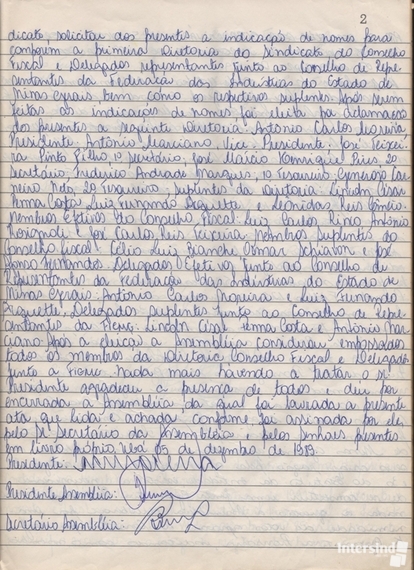 2
dicato solicitou dos presentes a indicação de nomes para
comporem a primeira Diretoria do Sindicato do Conselho
Fiscal e Delegados representantes junto ao Conselho de Repre-
sentantes da Federação das Indústrias do Estado de
Minas Gerais, bem como os respectivos suplentes. Após serem
feitas as indicação de nomes foi eleita por aclamação
dos presentes a seguinte Diretoria: Antônio Carlos Moreira
Presidente: Antônio Marciano, Vice Presidente: José Teixei-
ra Pinto Filho, 1º secretário, José Henrique 2º
secretário, Frederico Andrade Marques, 1º Tesoureiro, Generoso Car-
neiro Neto, 2º Tesoureiro, Suplentes da Diretoria: Lincoln César
Costa, Luiz Fernando e Leonidas Reis
Membros efetivos do Conselho Fiscal: Luiz Carlos Antônio
e José Carlos Reis Teixeira. Membros Suplentes do
Conselho fiscal: Célio Luiz Bianchi, Osmar Schiavon e José
Afonso Fernandes. Delegados Efetivos junto ao Conselho de
Representantes da Federação das Indústrias do Estado de
Minas Gerais: Antonio Carlos Moreira e Luiz Fernando
Delegados suplentes junto ao Conselho de Repre-
sentantes da Fiemg: Lincoln César Costa e Antônio Mar-
ciano. Após a eleição a Assembléia considerou empossados
todos os membros da Diretoria Conselho Fiscal e Delegados
junto a Fiemg. Nada mais havendo a tratar o Sr.
Presidente agradeceu a presença de todos e deu por
encerrada a Assembléia da qual foi lavrada a presente
ata que lida e achada conforme foi assinada por ele,
pelo Sr. Secretário da Assembléia e pelos senhores presentes
em livro próprio. 05 de dezembro de 1989.
Presidente:
Presidente Assembléia:
Secretário Assembléia:
IntersInd